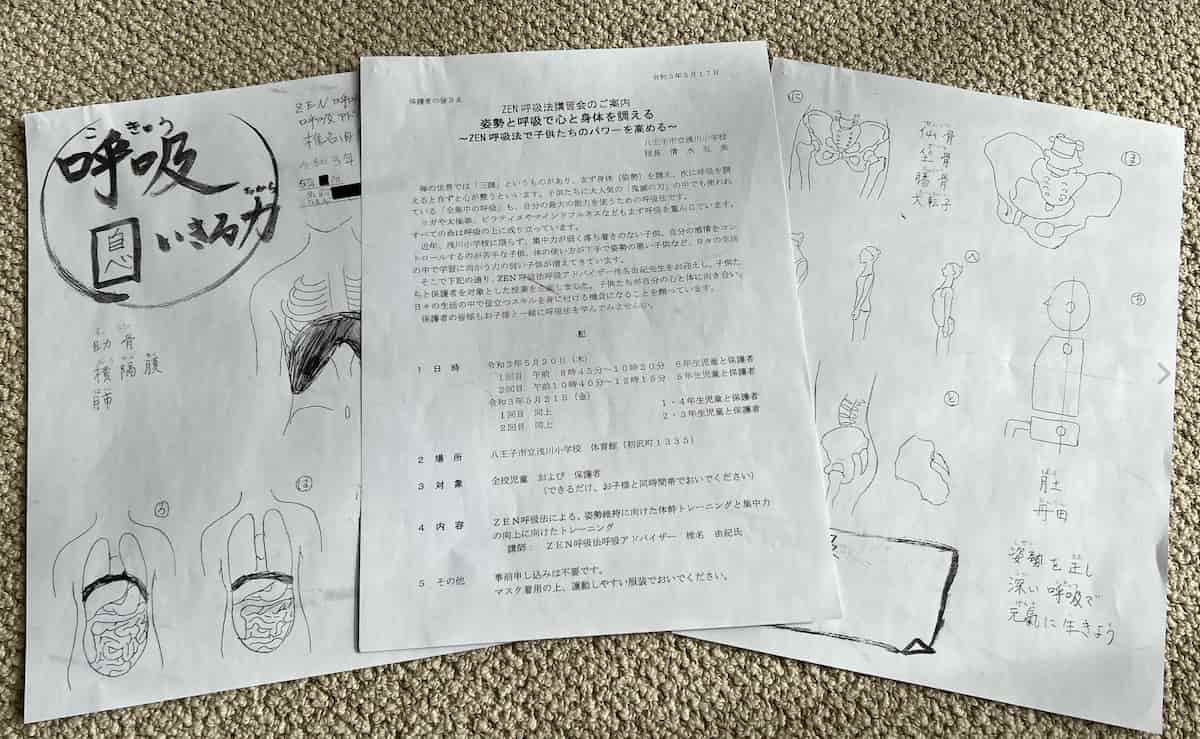 こきゅう
呼吸
息
いきる力
ちから
ZEN 呼吸
呼吸アド
椎名由
令和3年
ろっ こつ
肋骨
横隔膜
肺
ろ
は
令和3年5月17日
保護者の皆さま
ZEN呼吸法講習会のご案内
姿勢と呼吸で心と身体を調える
～ZEN呼吸法で子供たちのパワーを高める～
八王子市立浅川小学校
校長 清水弘美
禅の世界では「三調」というものがあり、まず身体（姿勢）を調え、次に呼吸を調
えると自ずと心が整うといいます。子供たちに大人気の「鬼滅の刃」の中でも使われ
ている「全集中の呼吸」も、自分の最大の能力を使うための呼吸法です。
ヨガや太極拳、ピラティスやマインドフルネスなどもまず呼吸を重んじています。
すべての命は呼吸の上に成り立っています。
近年、浅川小学校に限らず、集中力が低く落ち着きのない子供、自分の感情をコン
トロールするのが苦手な子供、体の使い方が下手で姿勢の悪い子供など、日々の生活
の中で学習に向かう力の弱い子供が増えてきています。
そこで下記の通り、ZEN呼吸法呼吸アドバイザー椎名由紀先生をお迎えし、子供た
ちと保護者を対象とした授業を企画しました。子供たちが自分の心と体に向き合い、
日々の生活の中で役立つスキルを身に付ける機会になることを願っています。
保護者の皆様もお子様と一緒に呼吸法を学んでみませんか。
記
1 日 時 令和3年5月20日（木）
1回目 午前 8時45分～10時20分 6年生児童と保護者
2回目 午前10時40分～12時15分 5年生児童と保護者
令和3年5月21日（金）
1回目 同上 1・4年生児童と保護者
2回目 同上 2・3年生児童と保護者
2 場 所 八王子市立浅川小学校 体育館（初沢町1335）
3 対 象 全校児童 および 保護者
（できるだけ、お子様と同時間帯でおいでください）
4 内 容 ZEN呼吸法による、姿勢維持に向けた体幹トレーニングと集中力
の向上に向けたトレーニング
講師： ZEN呼吸法呼吸アドバイザー 椎名 由紀氏
5 その他 事前申し込みは不要です。
マスク着用の上、運動しやすい服装でおいでください。
に
仙骨
坐骨
腸骨
大転子
ほ
へ
と
ち
丹田
姿勢を正し
深い呼吸で
元氣に生きよう